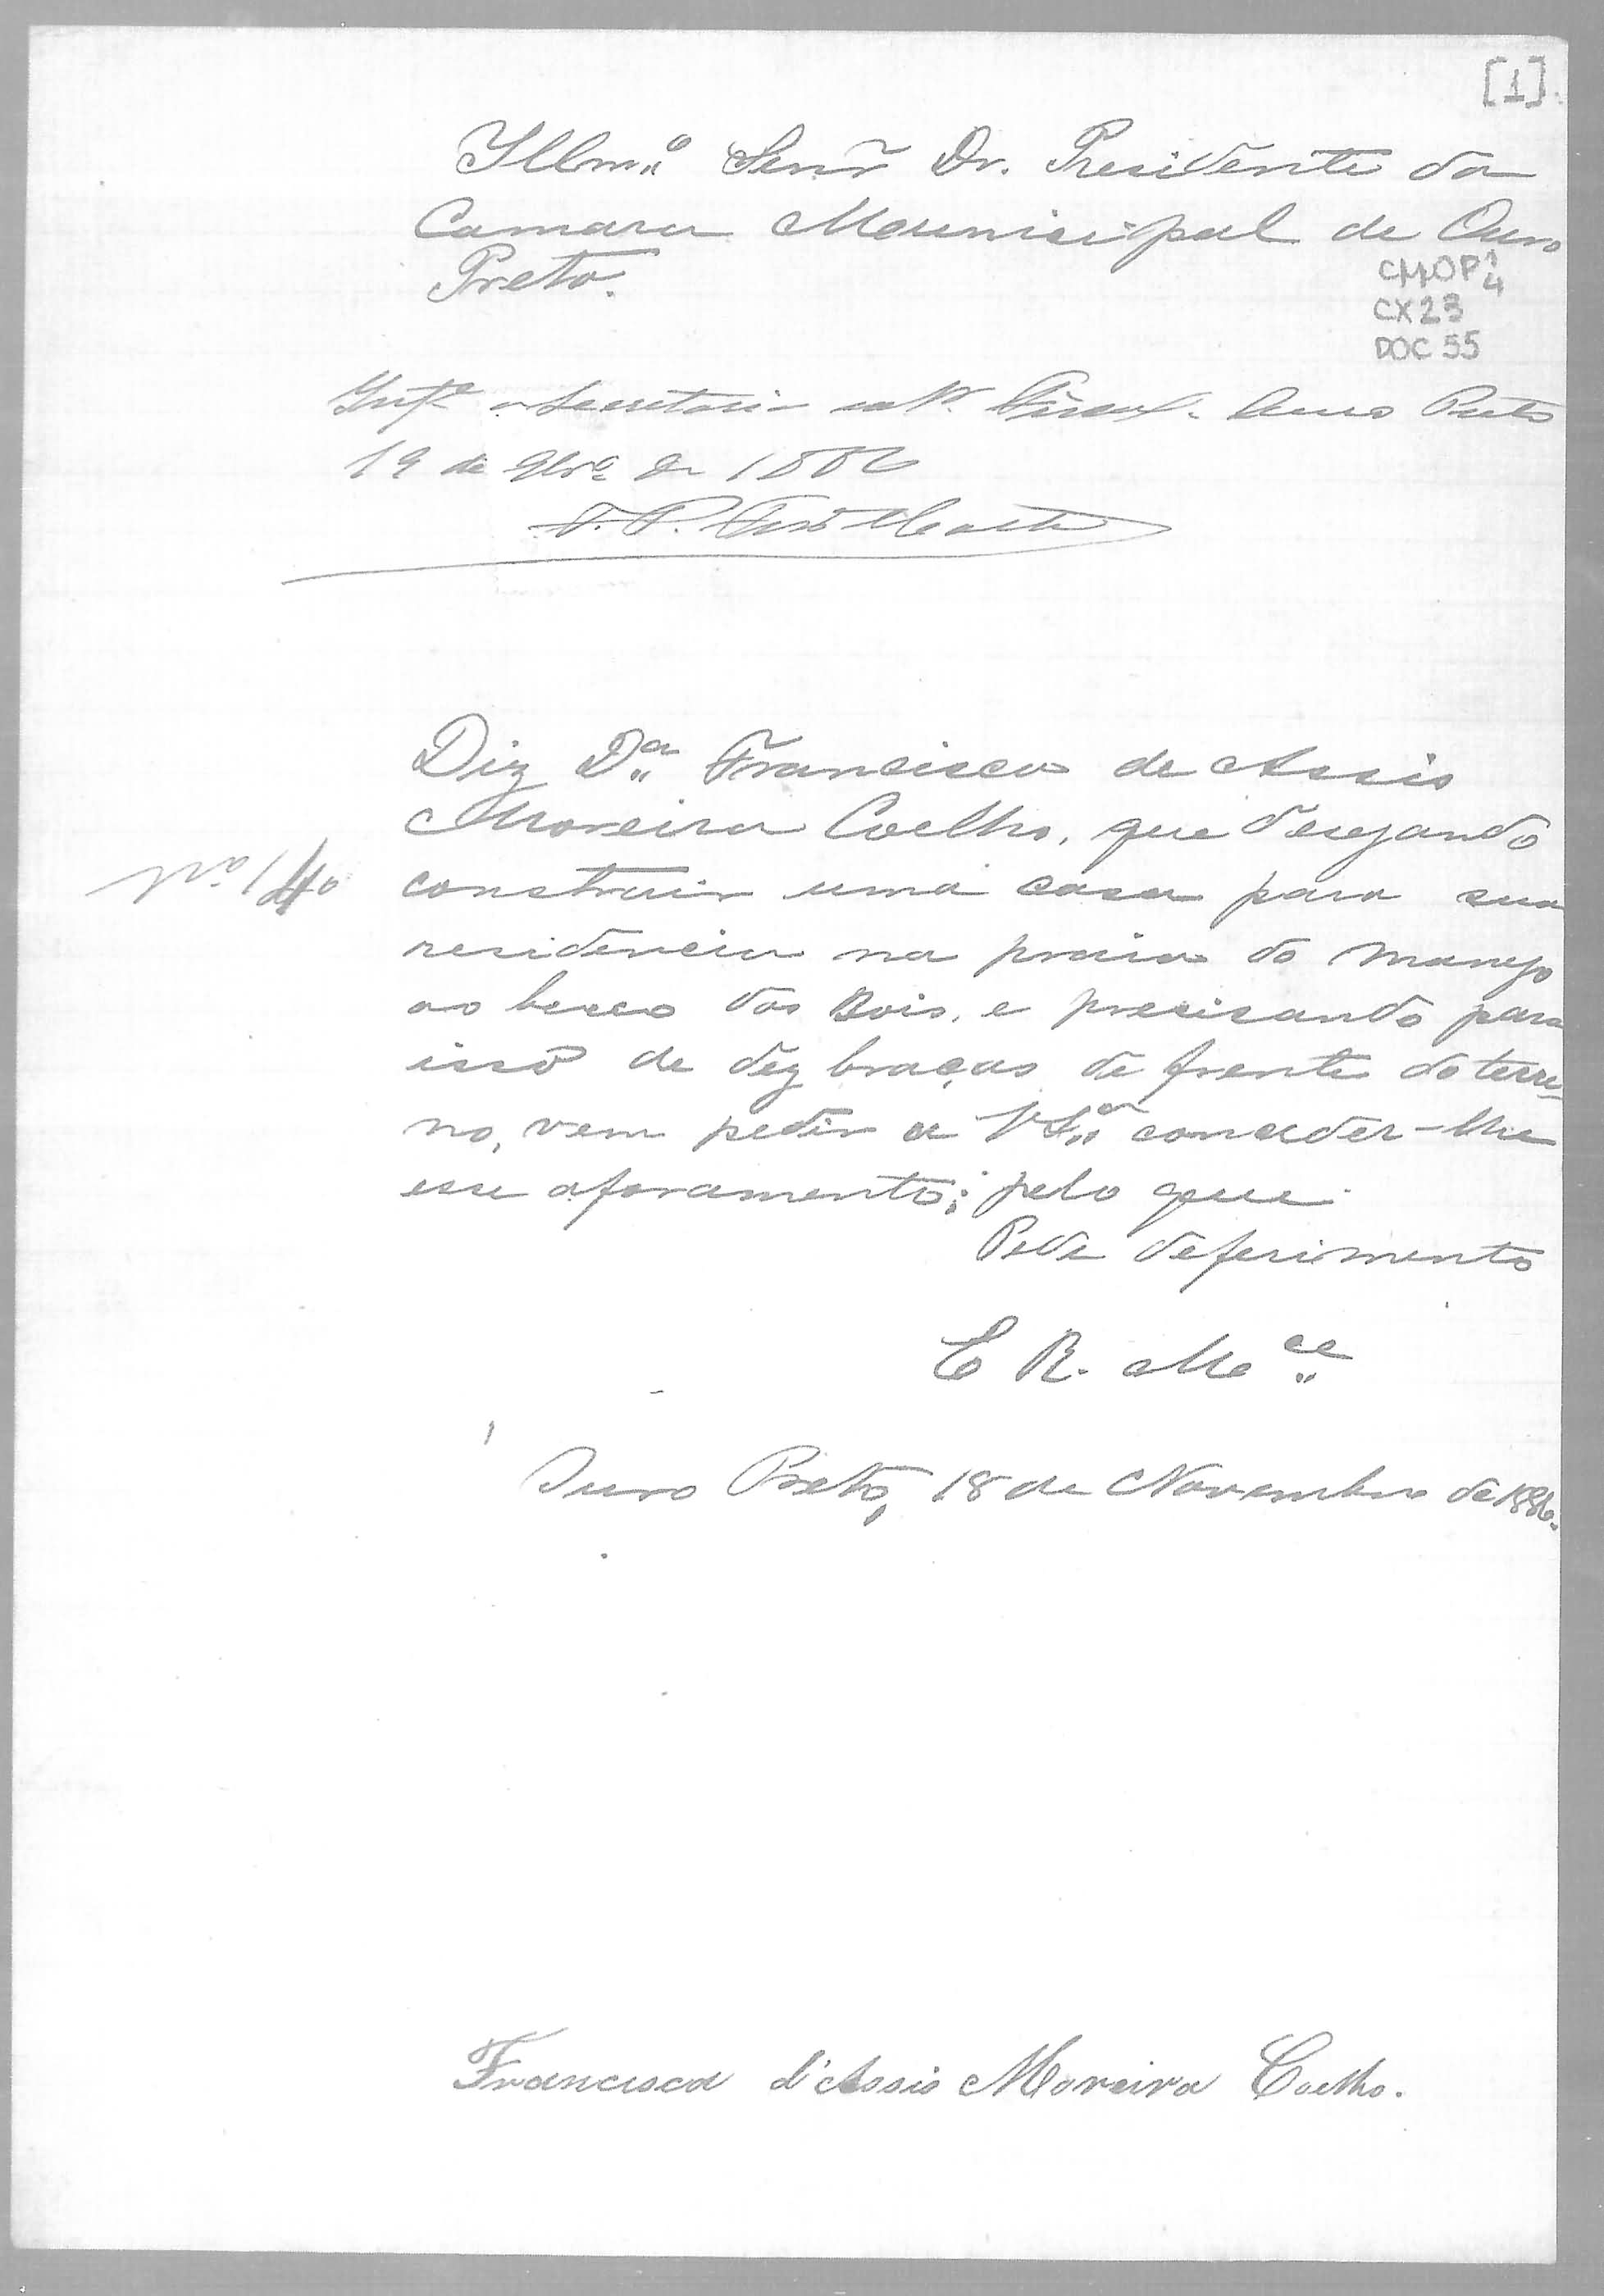 [1]
Illm.º Senr Dr. Presidente da
Camara Municipal de Ouro
Preto.
CMOP 1/4
CX 23
DOC 55
Inf.e a Secretaria e o Sr. Fiscal. Ouro Preto
19 de 9br.º de 1886
Diz D.ª Francisca de Assis
Moreira Coelho, que desejando
Nº 140
construir uma casa para sua
residencia na praia do manejo
ao becco dos Bois, e precisando para
isso de dez braças de frente do terre-
no, vem pedir a V S.ª conceder-lhe
esse aforamento; pelo que
Pede deferimento
E R. M.ce
Ouro Preto, 18 de Novembro de 1886.
Francisca d'Assis Moreira Coelho.